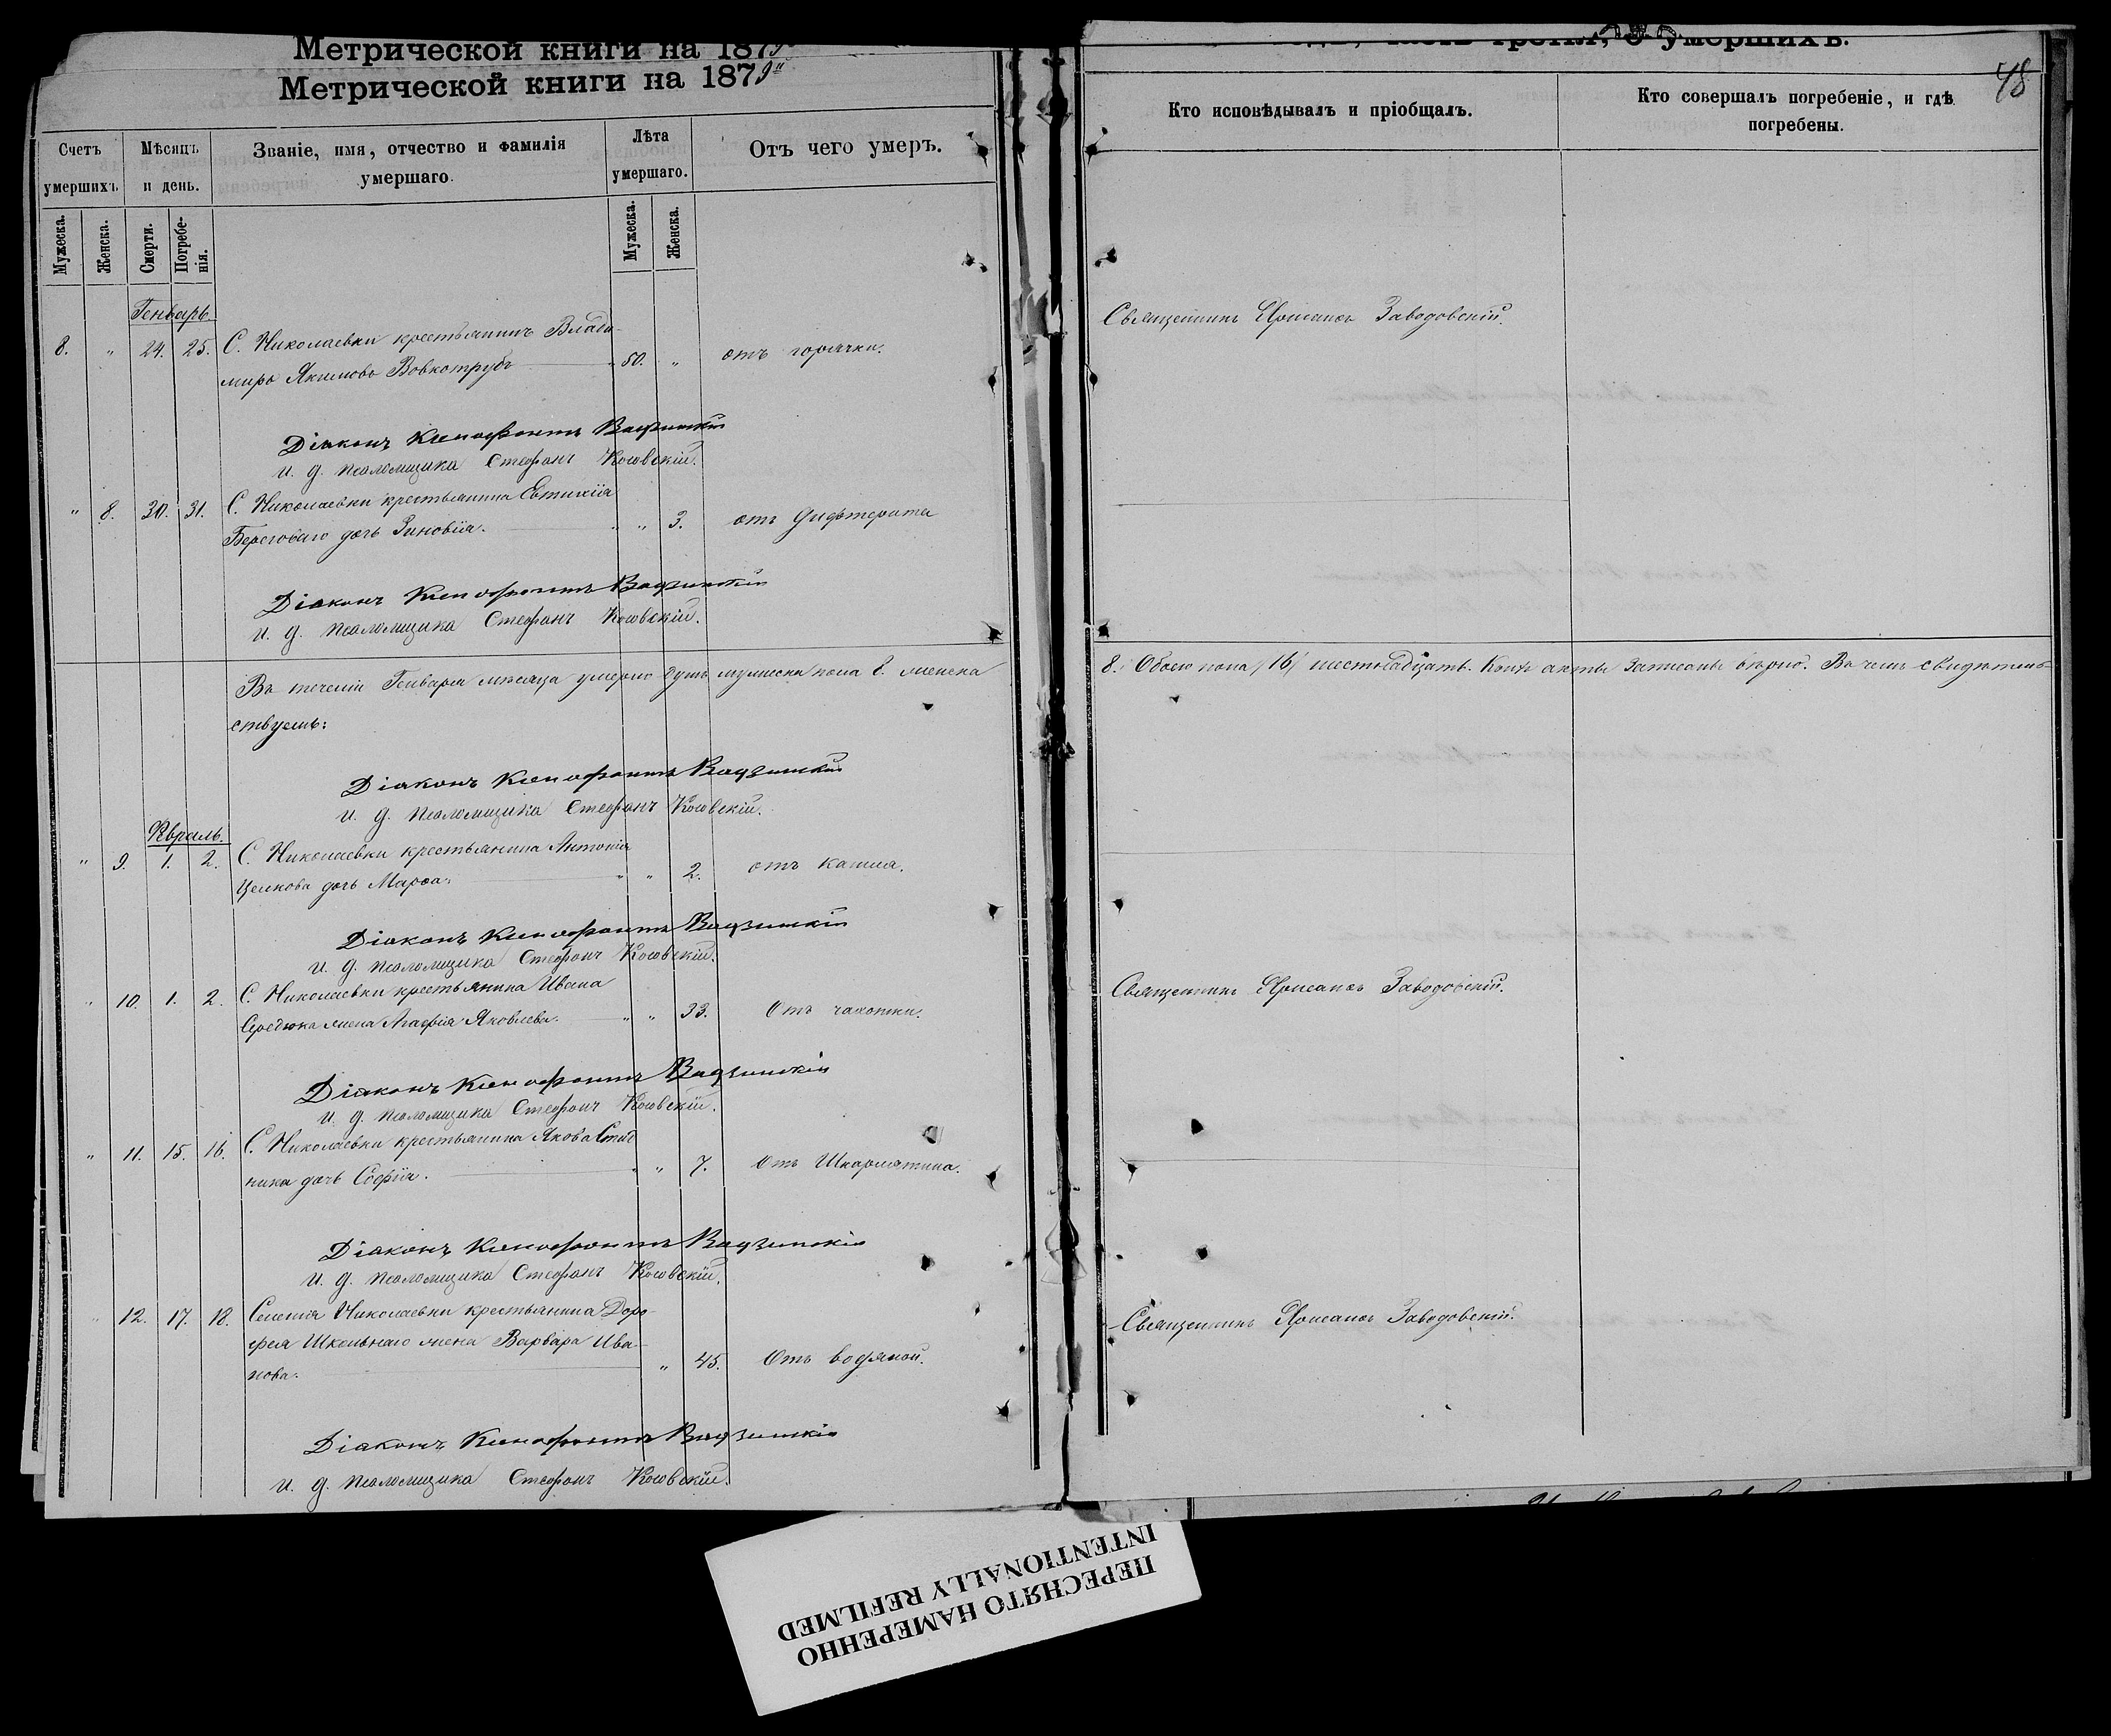 Метрической книги на 1879
Метрической книги на 1879й
Счетъ умершихъ.
Мѣсяцъ и день.
Званіе, имя, отчество и фамилія умершаго.
Лѣта умершаго.
Отъ чего умеръ.
Мужеска.
Женска.
Смерти.
Погребе-
нія.
Мужеска.
Женска.
Генварь.
8. „ 24. 25. С. Николаевки крестьянинъ Влади-
миръ Якимовъ Вовкотрубъ 50. „ отъ горячки.
Діаконъ Ксенофонтъ
и. д. псаломщика Стефанъ Косовскій.
„ 8. 30. 31. С. Николаевки крестьянина Евтихія
Береговаго дочь Зиновія. „ „ 3. отъ дифтерита
Діаконъ Ксенофонтъ
и. д. псаломщика Стефанъ Косовскій.
Въ теченіи Генваря мѣсяца умерло душъ мужеска пола 8. женска
ствуемъ:
Діаконъ Ксенофонтъ
и. д. псаломщика Стефанъ Косовскій.
„ 9. 1. 2. С. Николаевки крестьянина Антонія
дочь Марѳа. „ „ 2. отъ кашля.
Діаконъ Ксенофонтъ
и. д. псаломщика Стефанъ Косовскій.
„ 10. 1. 2. С. Николаевки крестьянина Ивана
Середюка жена Агафія Яковлева. „ „ 33. Отъ чахотки.
Діаконъ Ксенофонтъ
и. д. псаломщика Стефанъ Косовскій.
„ 11. 15. 16. С. Николаевки крестьянина Якова
ника дочь Софія. „ „ 7. Отъ Шкарлятина.
Діаконъ Ксенофонтъ
и. д. псаломщика Стефанъ Косовскій.
„ 12. 17. 18. Селенія Николаевки крестьянина Доро-
фея Школьнаго жена Варвара Ива-
нова. „ 45. Отъ водяной.
Діаконъ Ксенофонтъ
и. д. псаломщика Стефанъ Косовскій.
часть третья, о умершихъ.
48
Кто исповѣдывалъ и пріобщалъ.
Кто совершалъ погребеніе, и гдѣ
погребены.
Священникъ Заводовскій.
8. Обоего пола /16/ шестнадцать. Коихъ акты записаны вѣрно. Въ чемъ свидѣтель-
Священникъ Заводовскій.
Священникъ Заводовскій.
ПЕРЕСНЯТО НАМЕРЕННО
INTENTIONALLY REFILMED